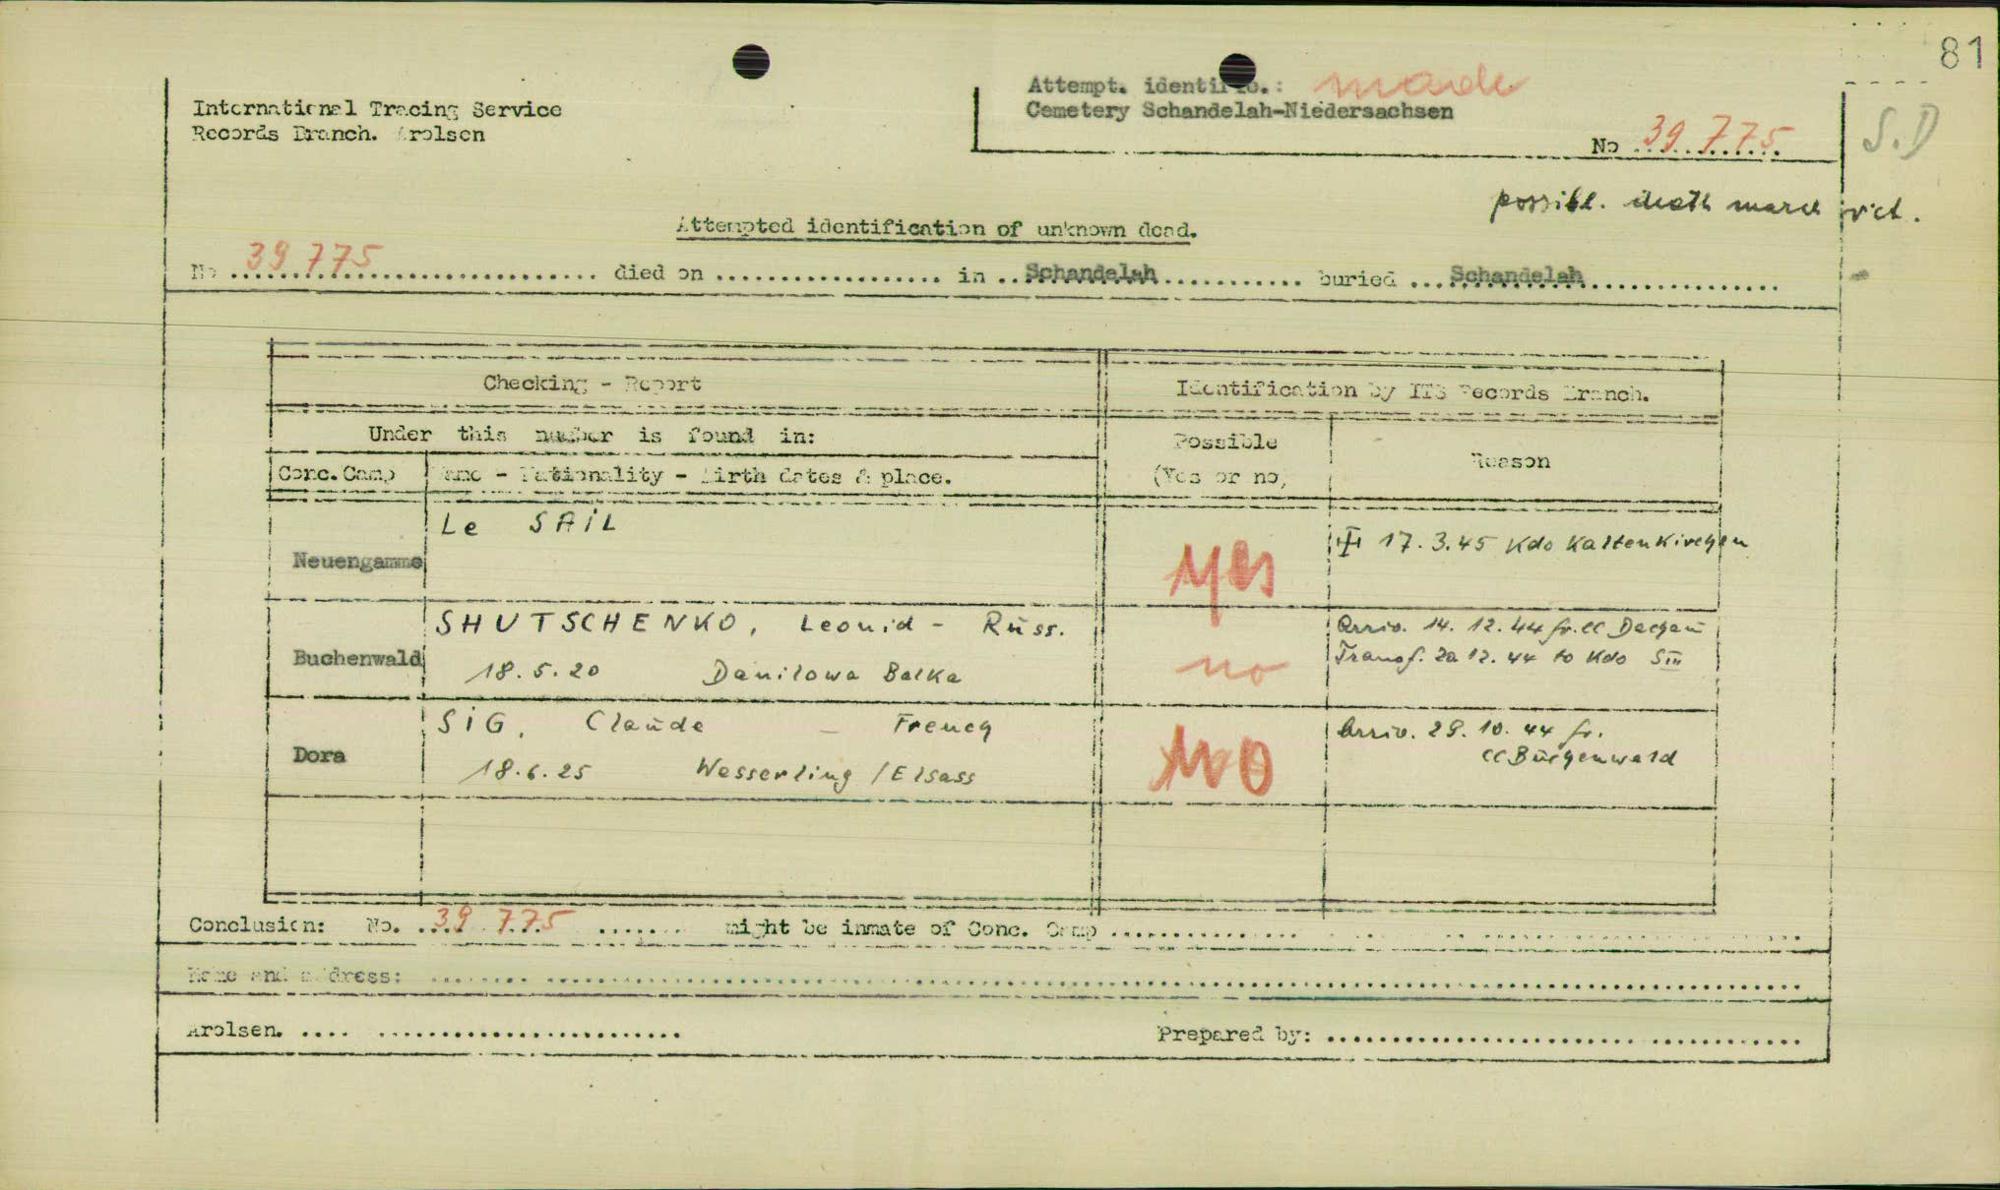 81
International Tracing Service
Records Branch. Arolsen
Attempt. identific.: made
Cemetery Schandelah-Niedersachsen
No 39 775
S.D
possibl. death march vict.
Attempted identification of unknown dead.
No 39 775 died on .................. in ..Schandelah........... buried ...Schandelah...............
Checking - Report
Identification by ITS Records Branch.
Under this number is found in:
Possible
(Yes or no)
Reason
Conc. Camp
Name - Nationality - Birth dates & place.
Neuengamme
Le SAIL
yes
17.3.45 Kdo Kaltenkirchen
Buchenwald
SHUTSCHENKO, Leonid - Russ.
18.5.20 Danilowa Balka
no
Arriv. 14.12.44 fr. CC Dachau
Transf. 20 12.44 to Kdo SIII
Dora
SIG, Claude - French
18.6.25 Wesserling / Elsass
NO
Arriv. 29.10.44 fr.
CC Buchenwald
Conclusion: No. 39 775 ....... might be inmate of Conc. Camp ...............
Name and address: ...............
Arolsen. .... ........................
Prepared by: ...............